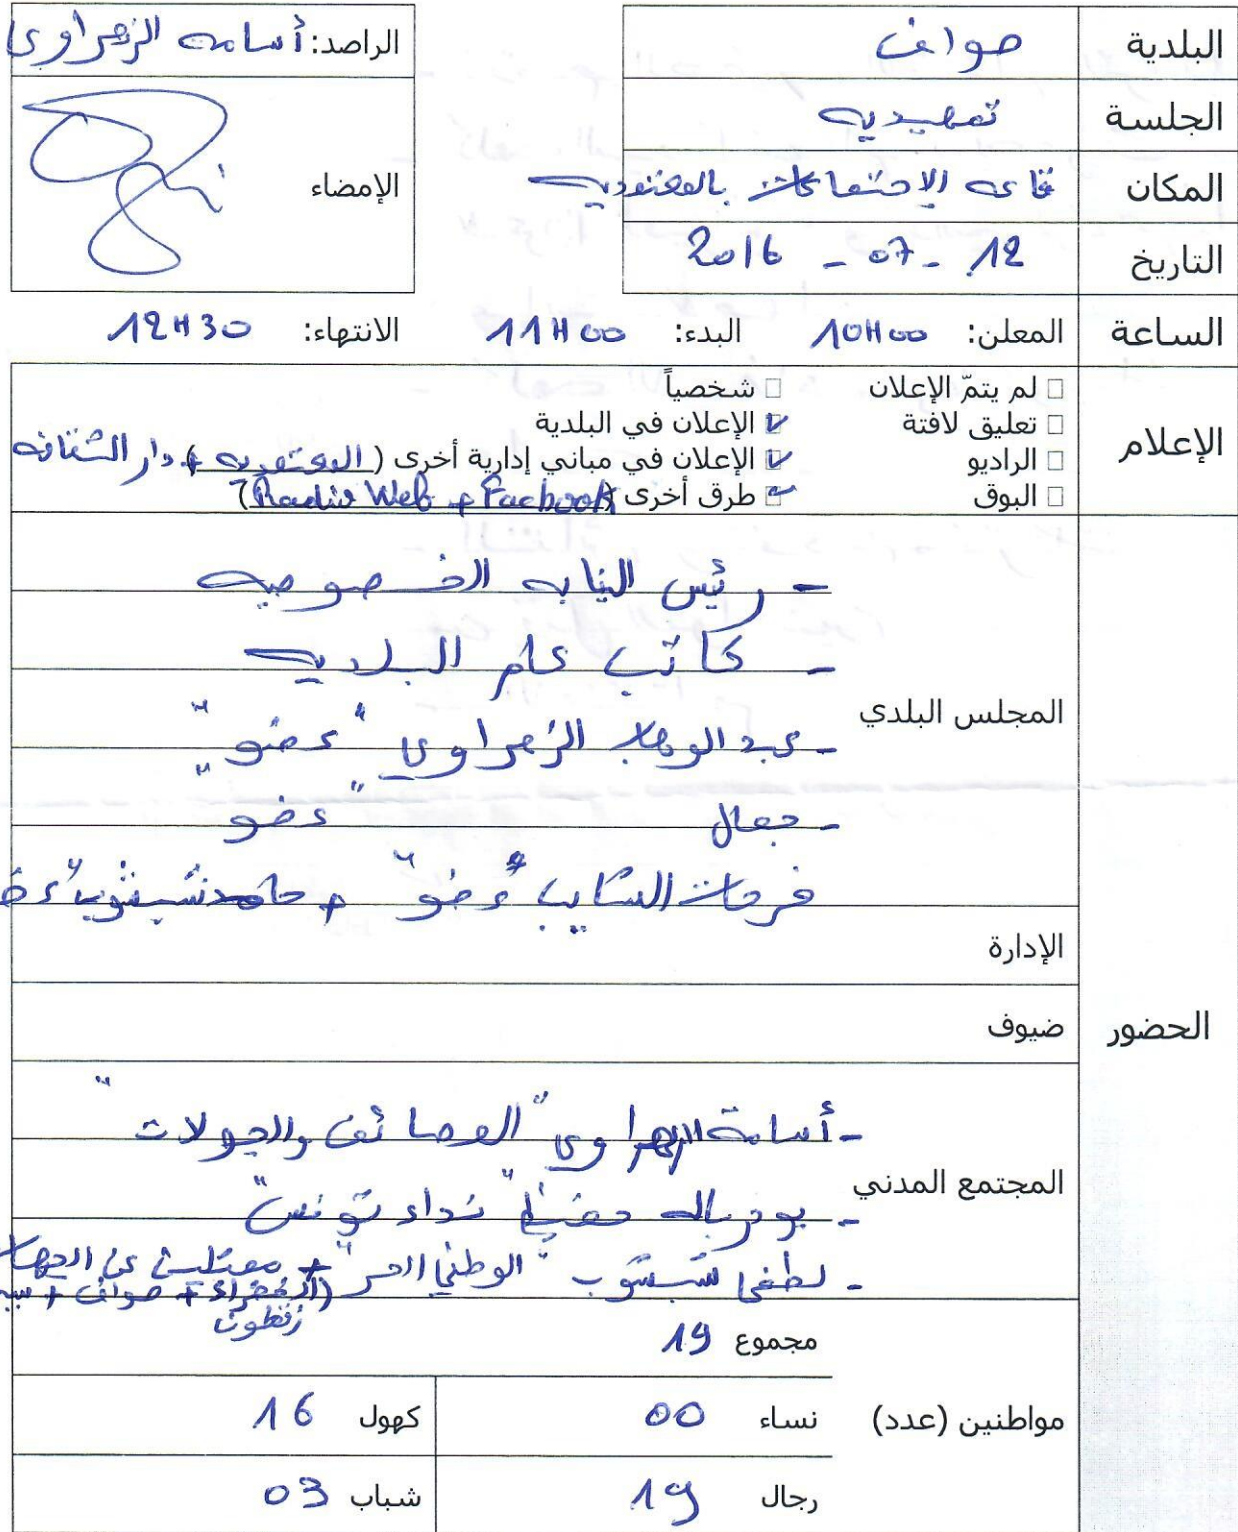 البلدية صواف
الراصد: أسامة الزهراوي
الجلسة تمهيدية
الإمضاء
المكان قاعة الاجتماعات بالمعتمدية
التاريخ 12 - 07 - 2016
الساعة المعلن: 10H00 البدء: 11H00 الانتهاء: 12H30
الإعلام
□ لم يتمّ الإعلان □ شخصياً
□ تعليق لافتة ☑ الإعلان في البلدية
□ الراديو ☑ الإعلان في مباني إدارية أخرى (المعتمدية) + دار الثقافة
□ البوق ☑ طرق أخرى (Radio Web + Facbook)
الحضور
المجلس البلدي
- رئيس النيابة الخصوصية
- كاتب عام البلدية
- عبد الوهاب الزهراوي "عضو"
- جمال "عضو"
فرحات الشايب "عضو" + حامد شبشوب
الإدارة
ضيوف
المجتمع المدني
- أسامة الزهراوي "المصائف والجولات"
- بودربالة "نداء تونس"
- لطفي شبشوب "الوطني الحر" + ممثلين عن الجهات
(الخضراء + صواف +
زقطون
مواطنين (عدد)
مجموع 19
نساء 00 كهول 16
رجال 19 شباب 03